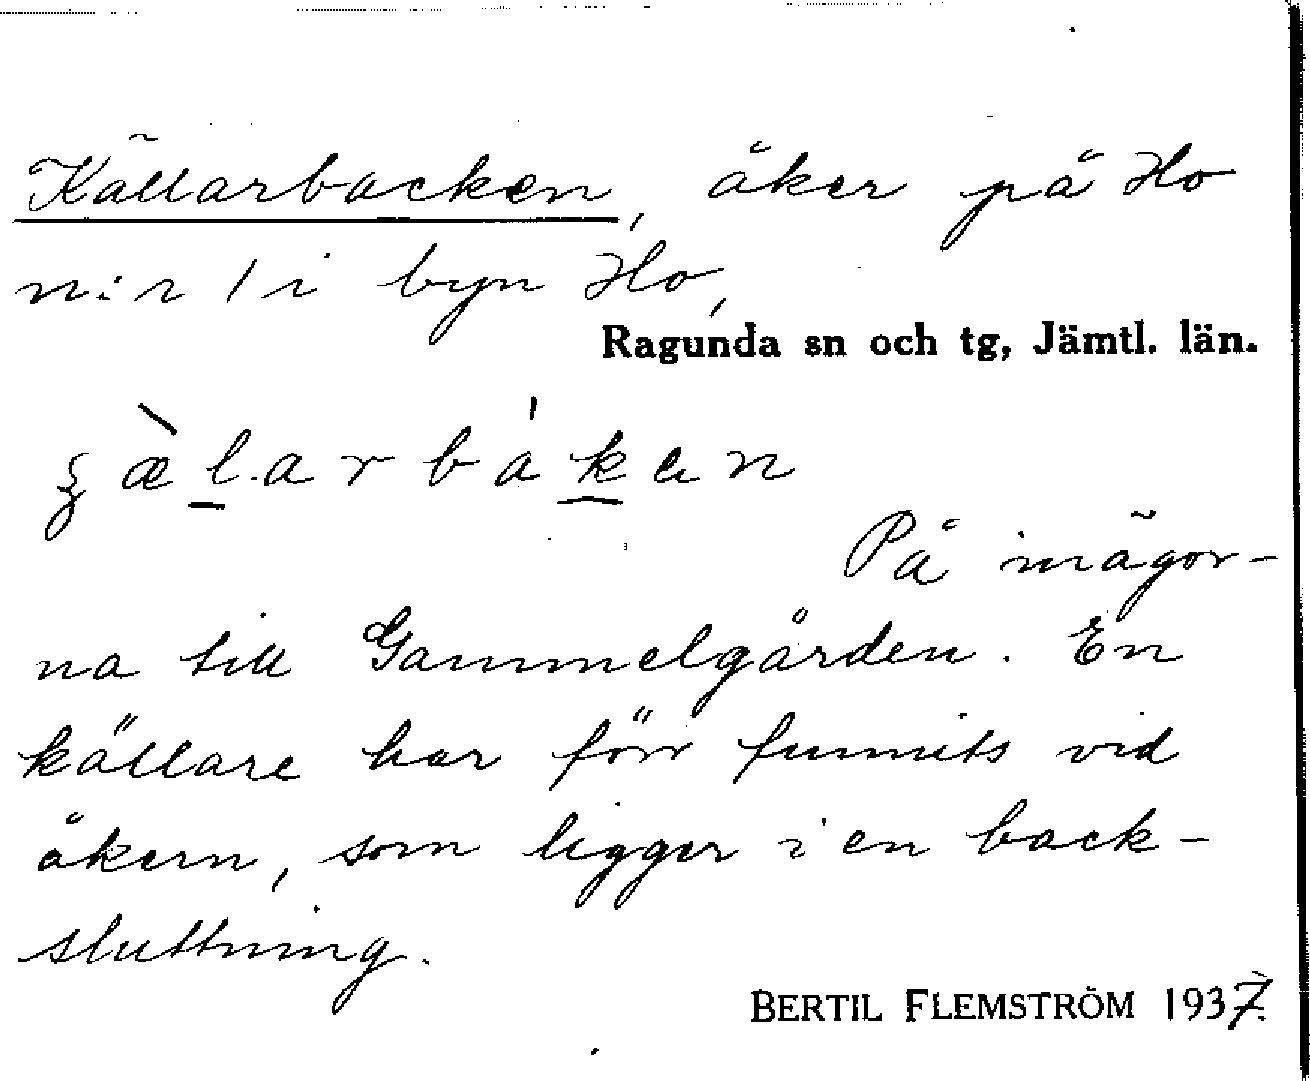 Källarbacken, åker på Ho
n:r 1 i byn Ho,
Ragunda sn och tg, Jämtl. län.
På inägor-
na till Gammelgården. En
källare har förr funnits vid
åkern, som ligger i en back-
sluttning.
BERTIL FLEMSTRÖM 1937.